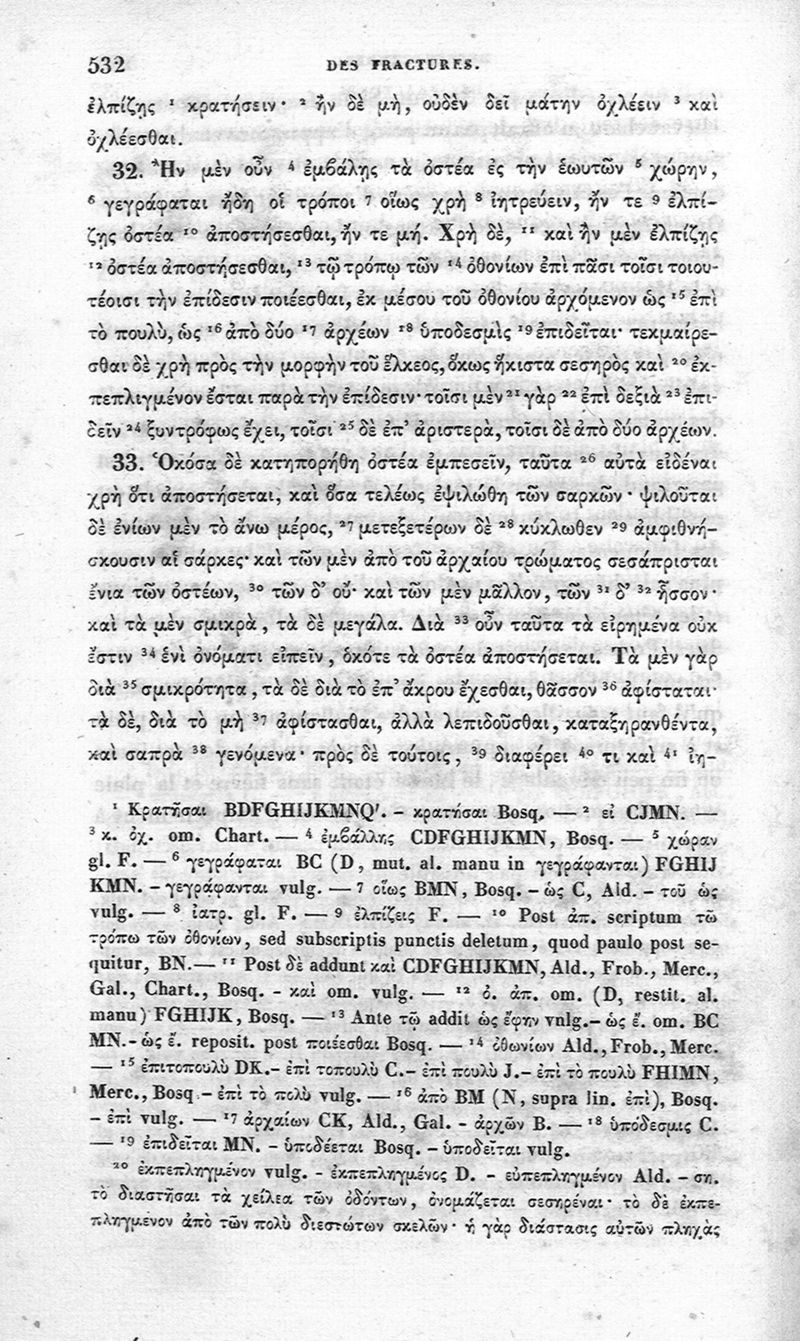 532 DES FRACTURES.
ἐλπίζῃς ¹ κρατήσειν· ² ἢν δὲ μὴ, οὐδὲν δεῖ μάτην ὀχλέειν ³ καὶ
ὀχλέεσθαι.
32. Ἢν μὲν οὖν ⁴ ἐμβάλῃς τὰ ὀστέα ἐς τὴν ἑωυτῶν ⁵ χώρην,
⁶ γεγράφαται ἤδη οἱ τρόποι ⁷ οἵως χρὴ ⁸ ἰητρεύειν, ἤν τε ⁹ ἐλπί-
ζῃς ὀστέα ¹⁰ ἀποστήσεσθαι, ἤν τε μή. Χρὴ δὲ, ¹¹ καὶ ἢν μὲν ἐλπίζῃς
¹² ὀστέα ἀποστήσεσθαι, ¹³ τῷ τρόπῳ τῶν ¹⁴ ὀθονίων ἐπὶ πᾶσι τοῖσι τοιου-
τέοισι τὴν ἐπίδεσιν ποιέεσθαι, ἐκ μέσου τοῦ ὀθονίου ἀρχόμενον ὡς ¹⁵ ἐπὶ
τὸ πουλὺ, ὡς ¹⁶ ἀπὸ δύο ¹⁷ ἀρχέων ¹⁸ ὑποδεσμὶς ¹⁹ ἐπιδεῖται· τεκμαίρε-
σθαι δὲ χρὴ πρὸς τὴν μορφὴν τοῦ ἕλκεος, ὅκως ἥκιστα σεσηρὸς καὶ ²⁰ ἐκ-
πεπλιγμένον ἔσται παρὰ τὴν ἐπίδεσιν· τοῖσι μὲν ²¹ γὰρ ²² ἐπὶ δεξιὰ ²³ ἐπι-
δεῖν ²⁴ ξυντρόφως ἔχει, τοῖσι ²⁵ δὲ ἐπ’ ἀριστερὰ, τοῖσι δὲ ἀπὸ δύο ἀρχέων.
33. Ὁκόσα δὲ κατηπορήθη ὀστέα ἐμπεσεῖν, ταῦτα ²⁶ αὐτὰ εἰδέναι
χρὴ ὅτι ἀποστήσεται, καὶ ὅσα τελέως ἐψιλώθη τῶν σαρκῶν· ψιλοῦται
δὲ ἐνίων μὲν τὸ ἄνω μέρος, ²⁷ μετεξετέρων δὲ ²⁸ κύκλωθεν ²⁹ ἀμφιθνή-
σκουσιν αἱ σάρκες· καὶ τῶν μὲν ἀπὸ τοῦ ἀρχαίου τρώματος σεσάπρισται
ἔνια τῶν ὀστέων, ³⁰ τῶν δ’ οὔ· καὶ τῶν μὲν μᾶλλον, τῶν ³¹ δ’ ³² ἧσσον·
καὶ τὰ μὲν σμικρὰ, τὰ δὲ μεγάλα. Διὰ ³³ οὖν ταῦτα τὰ εἰρημένα οὐκ
ἔστιν ³⁴ ἑνὶ ὀνόματι εἰπεῖν, ὁκότε τὰ ὀστέα ἀποστήσεται. Τὰ μὲν γὰρ
διὰ ³⁵ σμικρότητα, τὰ δὲ διὰ τὸ ἐπ’ ἄκρου ἔχεσθαι, θᾶσσον ³⁶ ἀφίσταται·
τὰ δὲ, διὰ τὸ μὴ ³⁷ ἀφίστασθαι, ἀλλὰ λεπιδοῦσθαι, καταξηρανθέντα,
καὶ σαπρὰ ³⁸ γενόμενα· πρὸς δὲ τούτοις, ³⁹ διαφέρει ⁴⁰ τι καὶ ⁴¹ ἰη-
¹ Κρατῆσαι BDFGHIJKMNQ'. - κρατήσαι Bosq. — ² εἰ CJMN. —
³ κ. ὀχ. om. Chart. — ⁴ ἐμβάλλῃς CDFGHIJKMN, Bosq. — ⁵ χώραν
gl. F. — ⁶ γεγράφαται BC (D, mut. al. manu in γεγράφανται) FGHIJ
KMN. - γεγράφανται vulg. — ⁷ οἵως BMN, Bosq. - ὡς C, Ald. - τοῦ ὡς
vulg. — ⁸ ἰατρ. gl. F. — ⁹ ἐλπίζεις F. — ¹⁰ Post ἀπ. scriptum τῶ
τρόπω τῶν ὀθονίων, sed subscriptis punctis deletum, quod paulo post se-
quitur, BN. — ¹¹ Post δὲ addunt καὶ CDFGHIJKMN, Ald., Frob., Merc.,
Gal., Chart., Bosq. - καὶ om. vulg. — ¹² ὀ. ἀπ. om. (D, restit. al.
manu) FGHIJK, Bosq. — ¹³ Ante τῶ addit ὡς ἔφην vulg. - ὡς ἔ. om. BC
MN. - ὡς ἔ. reposit. post ποιέεσθαι Bosq. — ¹⁴ ὀθωνίων Ald., Frob., Merc.
— ¹⁵ ἐπιτοπουλὺ DK. - ἐπὶ τοπουλὺ C. - ἐπὶ πουλὺ J. - ἐπὶ τὸ πουλὺ FHIMN,
Merc., Bosq. - ἐπὶ τὸ πολὺ vulg. — ¹⁶ ἀπὸ BM (N, supra lin. ἐπὶ), Bosq.
- ἐπὶ vulg. — ¹⁷ ἀρχαίων CK, Ald., Gal. - ἀρχῶν B. — ¹⁸ ὑπόδεσμις C.
— ¹⁹ ἐπιδεῖται MN. - ὑποδέεται Bosq. - ὑποδεῖται vulg.
²⁰ ἐκπεπληγμένον vulg. - ἐκπεπληγμένος D. - εὐπεπληγμένον Ald. - ση.
τὸ διαστῆσαι τὰ χείλεα τῶν ὀδόντων, ὀνομάζεται σεσηρέναι· τὸ δὲ ἐκπε-
πληγμένον ἀπὸ τῶν πολὺ διεστώτων σκελῶν· ἡ γὰρ διάστασις αὐτῶν πληχὰς